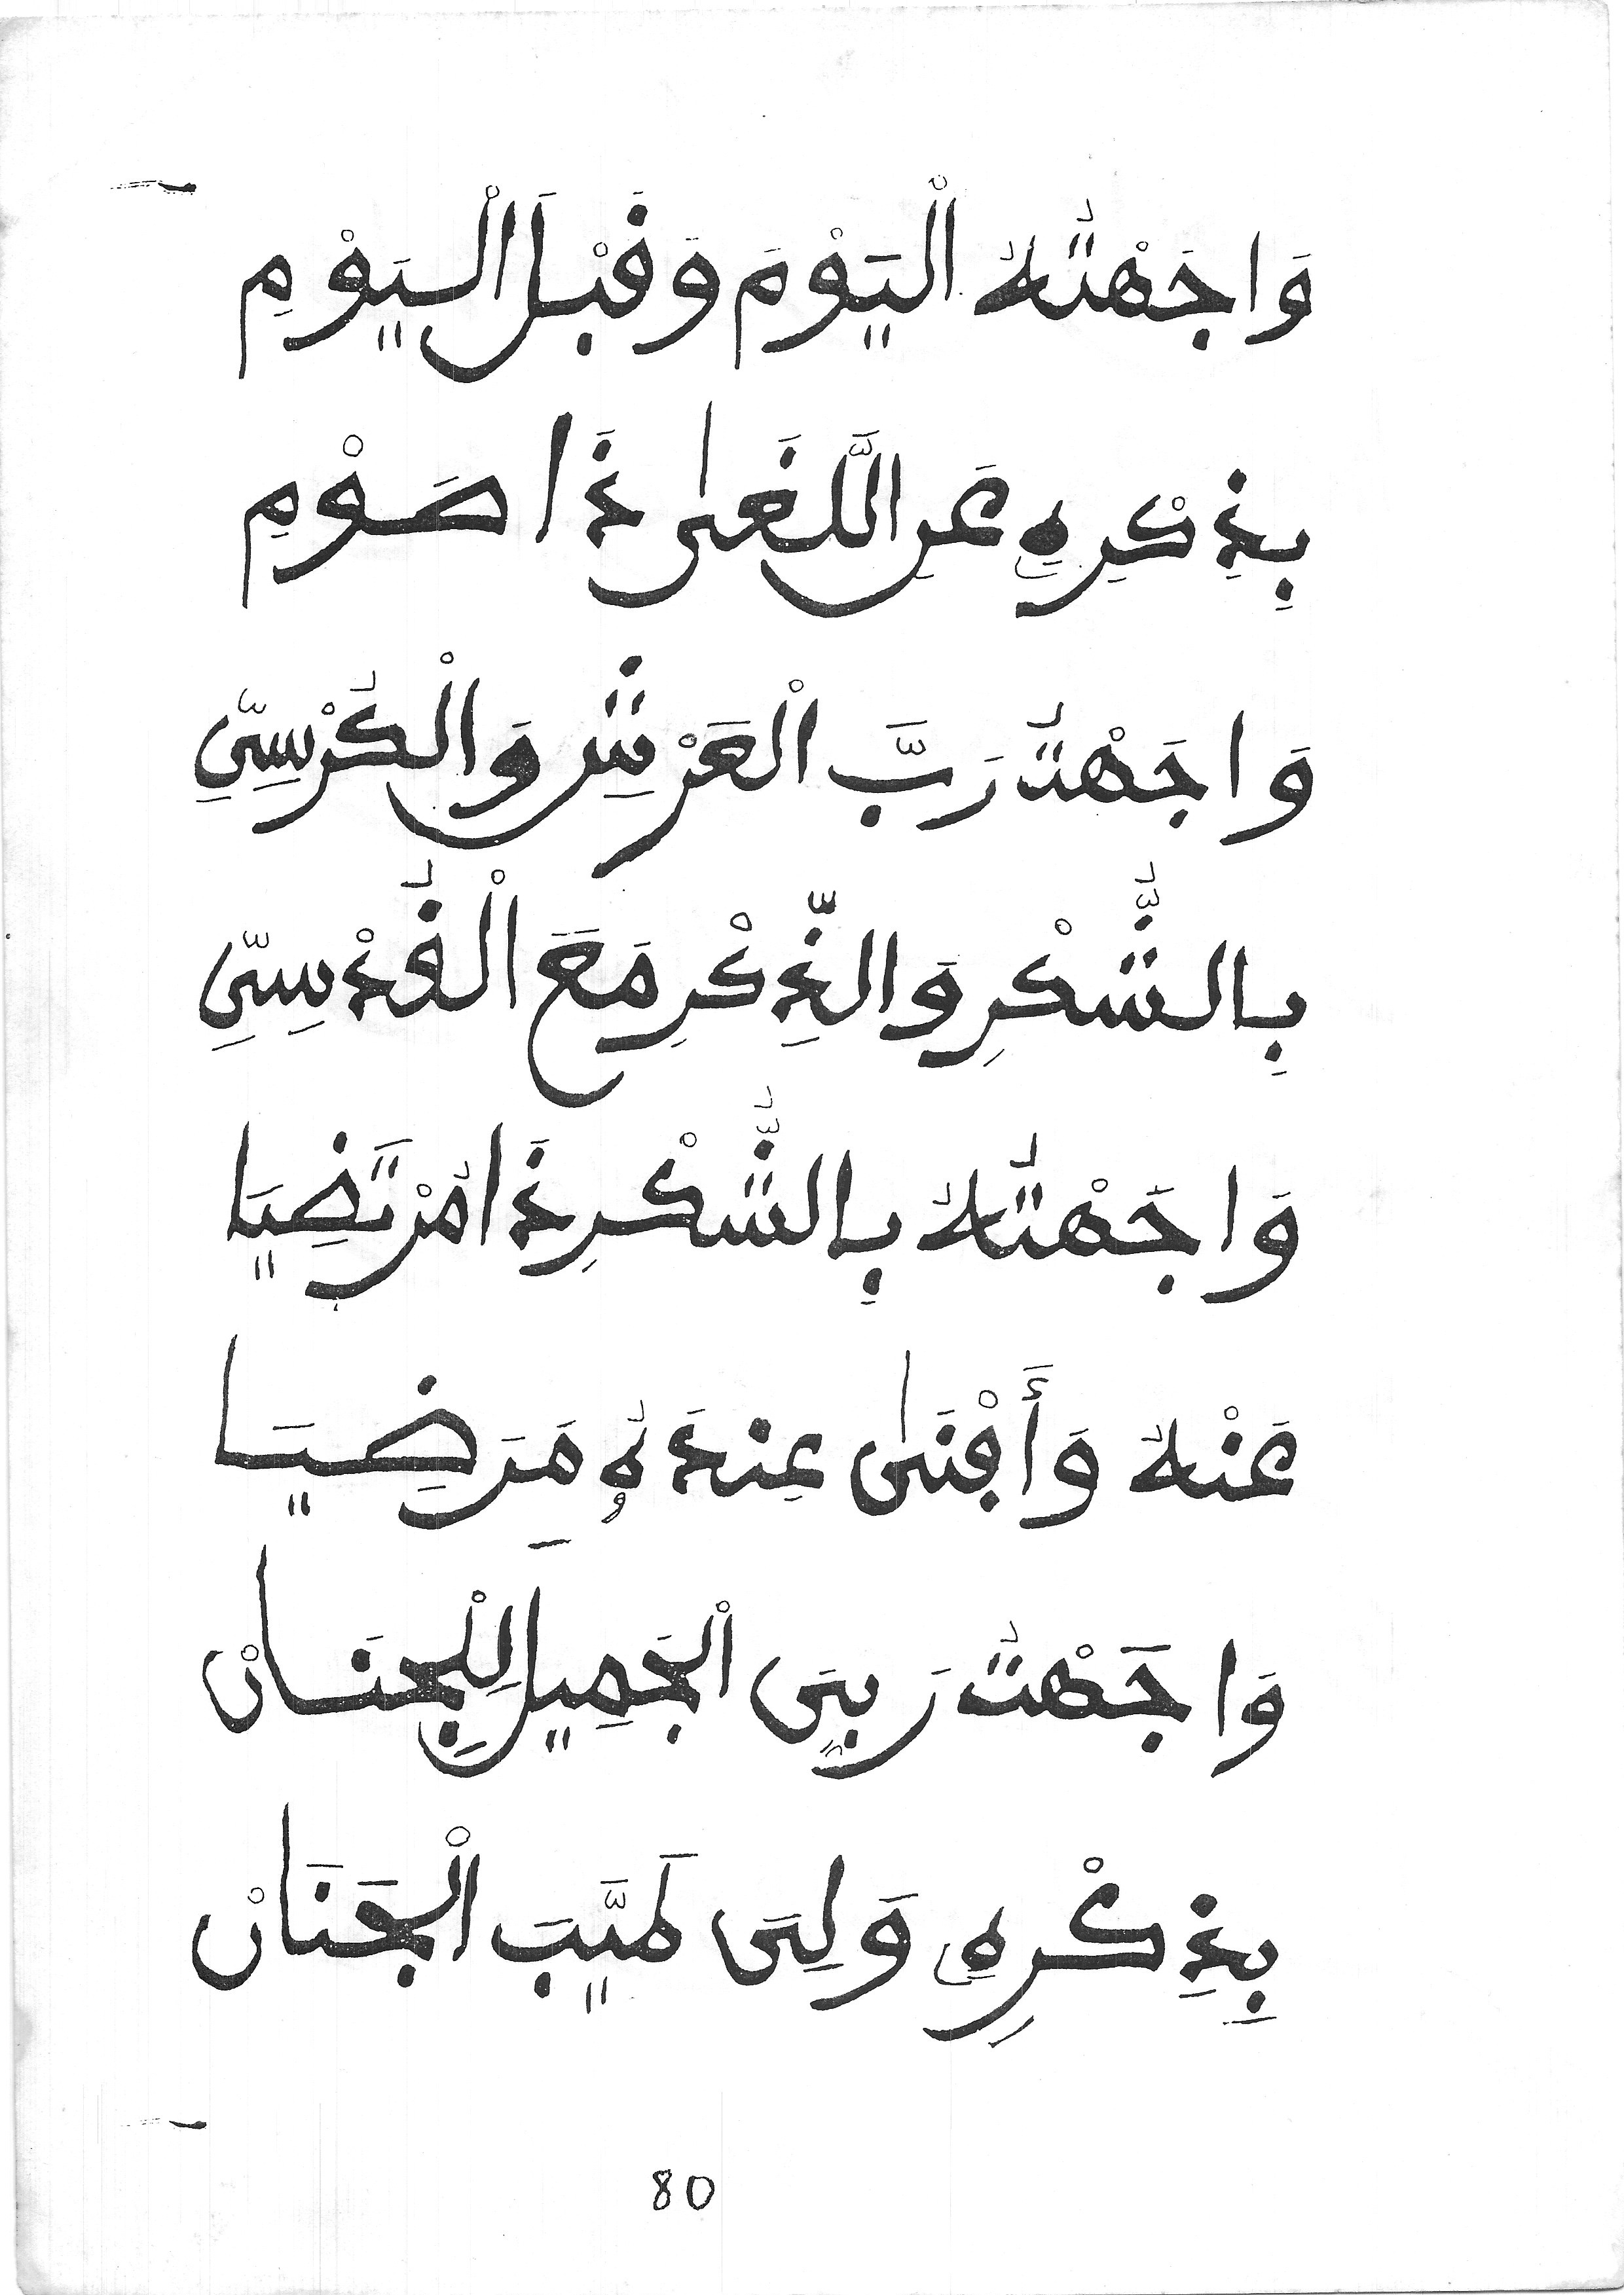 وَاجَهْتُهُ الْيَوْمَ وَقَبْلَ الْيَوْمِ
بِذِكْرِهِ عَنِ اللَّغَى ذَا صَوْمِ
وَاجَهْتُ رَبَّ الْعَرْشِ وَالْكُرْسِيِّ
بِالشُّكْرِ وَالذِّكْرِ مَعَ الْقُدْسِيِّ
وَاجَهْتُهُ بِالشُّكْرِ ذَا مُرْتَضِيَا
عَنْهُ وَأَبْقَى عِنْدَهُ مَرَضِيَا
وَاجَهْتُ رَبِّيَ الْجَمِيلَ لِلْجِنَانْ
بِذِكْرِهِ وَلِيَ طَيَّبَ الْجَنَانْ
80